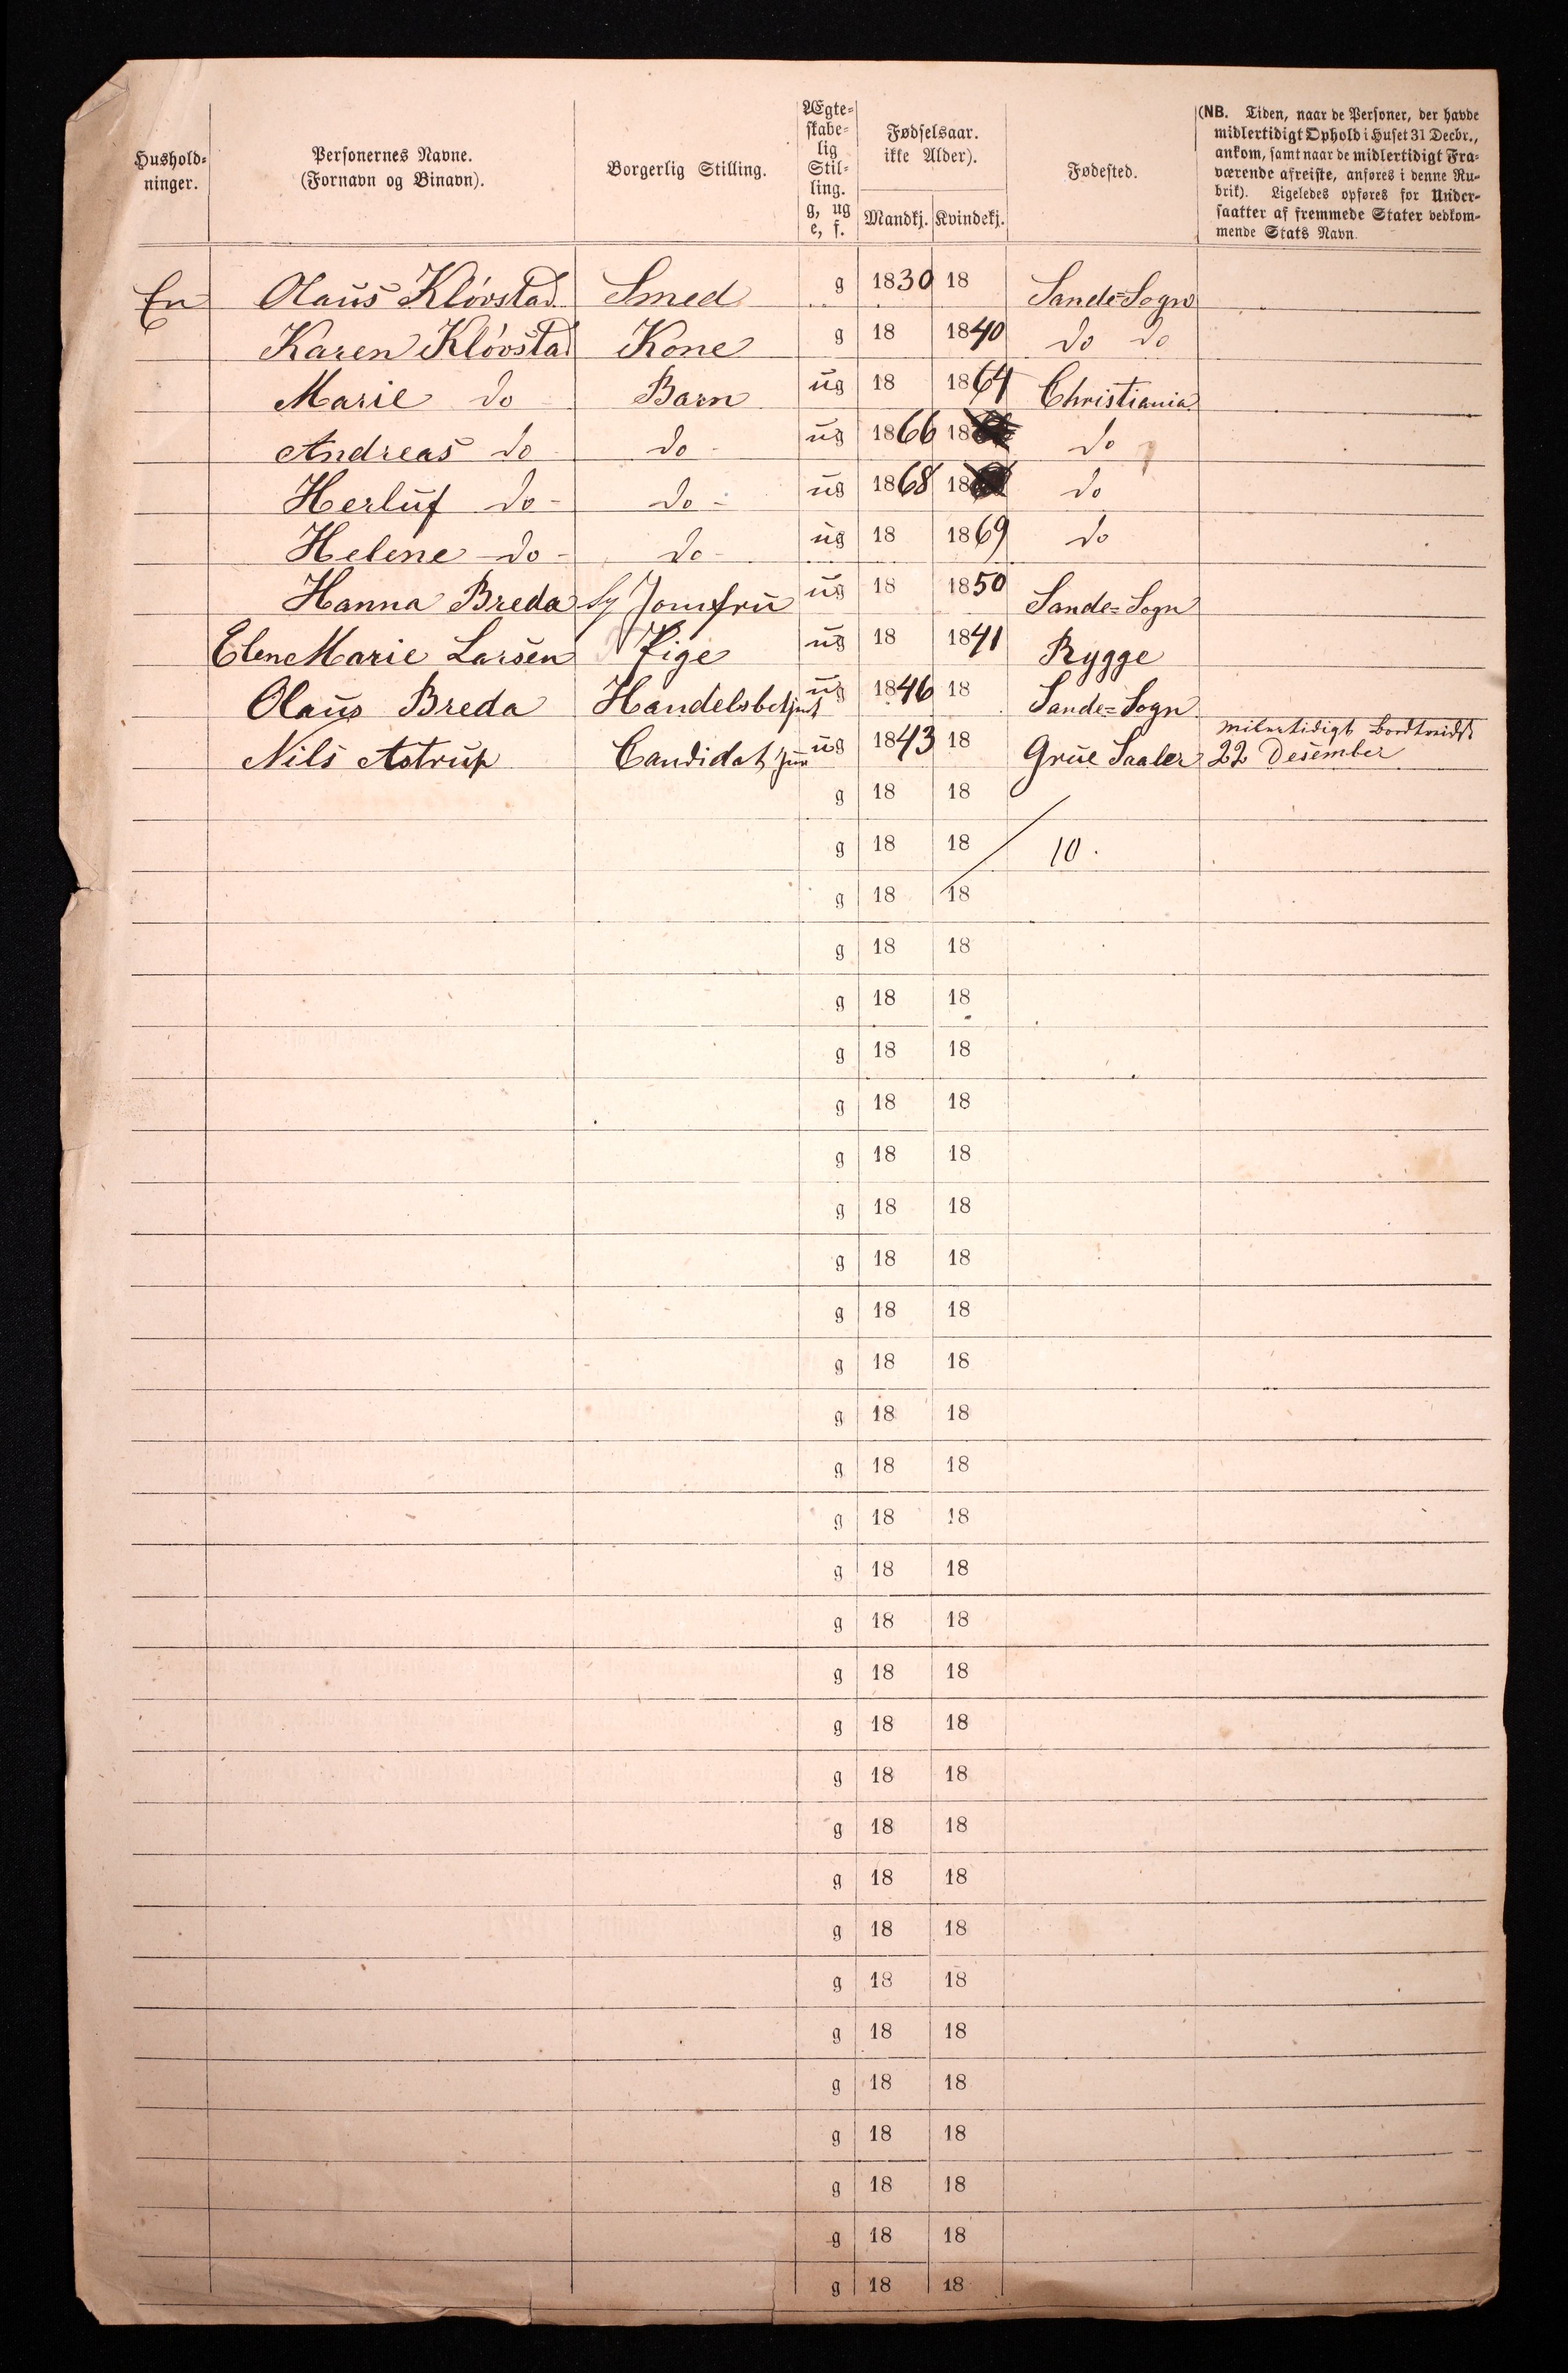 Hushold-
ninger.
Personernes Navne.
(Fornavn og Binavn).
Borgerlig Stilling.
Ægte-
skabe-
lig
Stil-
ling.
g, ug
e, f.
Fødselsaar.
ikke Alder).
Mandkj. Kvindekj.
Fødested.
(NB. Tiden, naar de Personer, der havde
midlertidigt Ophold i Huset 31 Decbr.,
ankom, samt naar de midlertidigt Fra-
værende afreiste, anføres i denne Ru-
brik). Ligeledes opføres for Under-
saatter af fremmede Stater vedkom-
mende Stats Navn.
En Olaus Kløvstad Smed g 1830 18 Sande=Sogn
Karen Kløvstad Kone g 18 1840 do do
Marie do Barn ug 18 1864 Christiania
Andreas do do ug 1866 18 do
Herluf do - do - ug 1868 18 do
Helene do - do - ug 18 1869 do
Hanna Breda Sy Jomfru ug 18 1850 Sande=Sogn
Elene Marie Larsen Pige ug 18 1841 Rygge
Olaus Breda Handelsbetjent ug 1846 18 Sande=Sogn
Nils Astrup Candidat jur ug 1843 18 Grue Saaler 22 Desember
g 18 18
g 18 18 10.
g 18 18
g 18 18
g 18 18
g 18 18
g 18 18
g 18 18
g 18 18
g 18 18
g 18 18
g 18 18
g 18 18
g 18 18
g 18 18
g 18 18
g 18 18
g 18 18
g 18 18
g 18 18
g 18 18
g 18 18
g 18 18
g 18 18
g 18 18
g 18 18
g 18 18
g 18 18
g 18 18
g 18 18